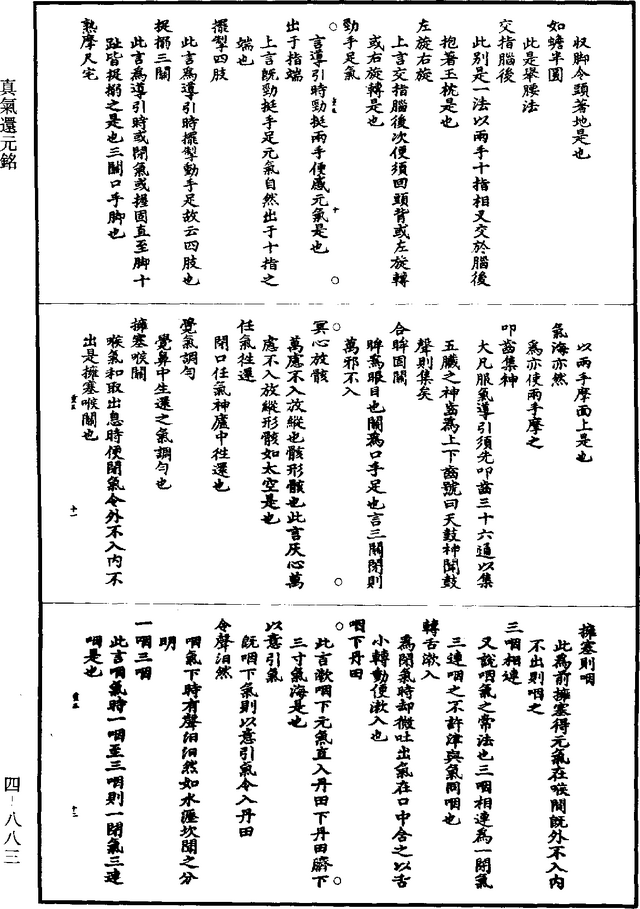 真氣還元銘
四-八八三
収脚令頭著地是也
如蟾半圓
此是举腰法
交指腦後
此別是一法以兩手十指相叉交於腦後
抱著玉枕是也
左旋右旋
上言交指腦後次便須回頭背或左旋轉
或右旋轉是也
勁手足氣
言導引時勁挺兩手便感元氣是也
出于指端
上言既勁挺手足元氣自然出于十指之
端也
擺掣四肢
此言爲導引時擺掣動手足故云四肢也
捉搦三關
此言爲導引時或閉氣或握固直至脚十
趾皆捉搦之是也三關口手脚也
熟摩尺宅
以兩手摩面上是也
氣海亦然
爲亦使兩手摩之
叩齒集神
大凡服氣導引須先叩齒三十六通以集
五臟之神齒爲上下齒號曰天鼓神聞鼓
聲則集矣
合眸固關
眸爲眼目也關爲口手足也言三關閉則
萬邪不入
冥心放骸
萬慮不入放縱也骸形骸也此言灰心萬
慮不入放縱形骸如太空是也
任氣往還
閉口任氣神廬中往還也
覺氣調勻
覺鼻中生還之氣調勻也
擁塞喉關
喉氣和取出息時便閉氣令外不入內不
出是擁塞喉關也
十一
擁塞則咽
此爲前擁塞得元氣在喉間既外不入內
不出則咽之
三咽相連
又說咽氣之常法也三咽相連爲一閉氣
三連咽之不許津與氣同咽也
轉舌漱入
爲閉氣時却微吐出氣在口中含之以舌
小轉動便漱入也
咽下丹田
此言漱咽下元氣直入丹田下丹田臍下
三寸氣海是也
以意引氣
既咽下氣則以意引氣令入丹田
令聲汩然
咽氣下時有聲汩汩然如水瀝坎聞之分
明
一咽三咽
此言咽氣時一咽至三咽則一閉氣三連
咽是也
十二